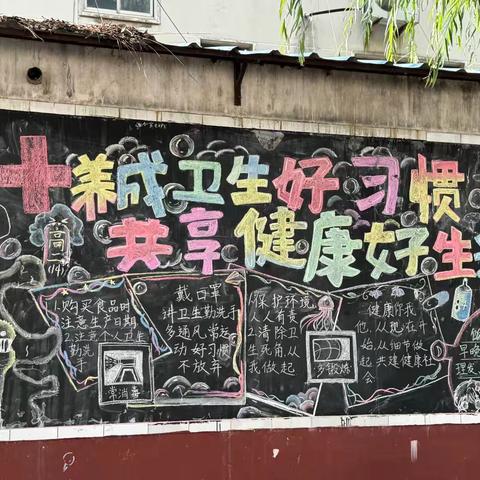 养成卫生好习惯
共享健康好生
1.购买食品时
注意生产日期
2.注意个人卫生
勤洗
手
常消毒
戴口罩
讲卫生勤洗手
多通风常运
动好习惯
不放弃
1保护环境
人人有责
2.清除卫
生死角,从
我做起
多锻炼
健康你我
他,从现在开
始,从细节做
起共建健康社
会
早晚
理发